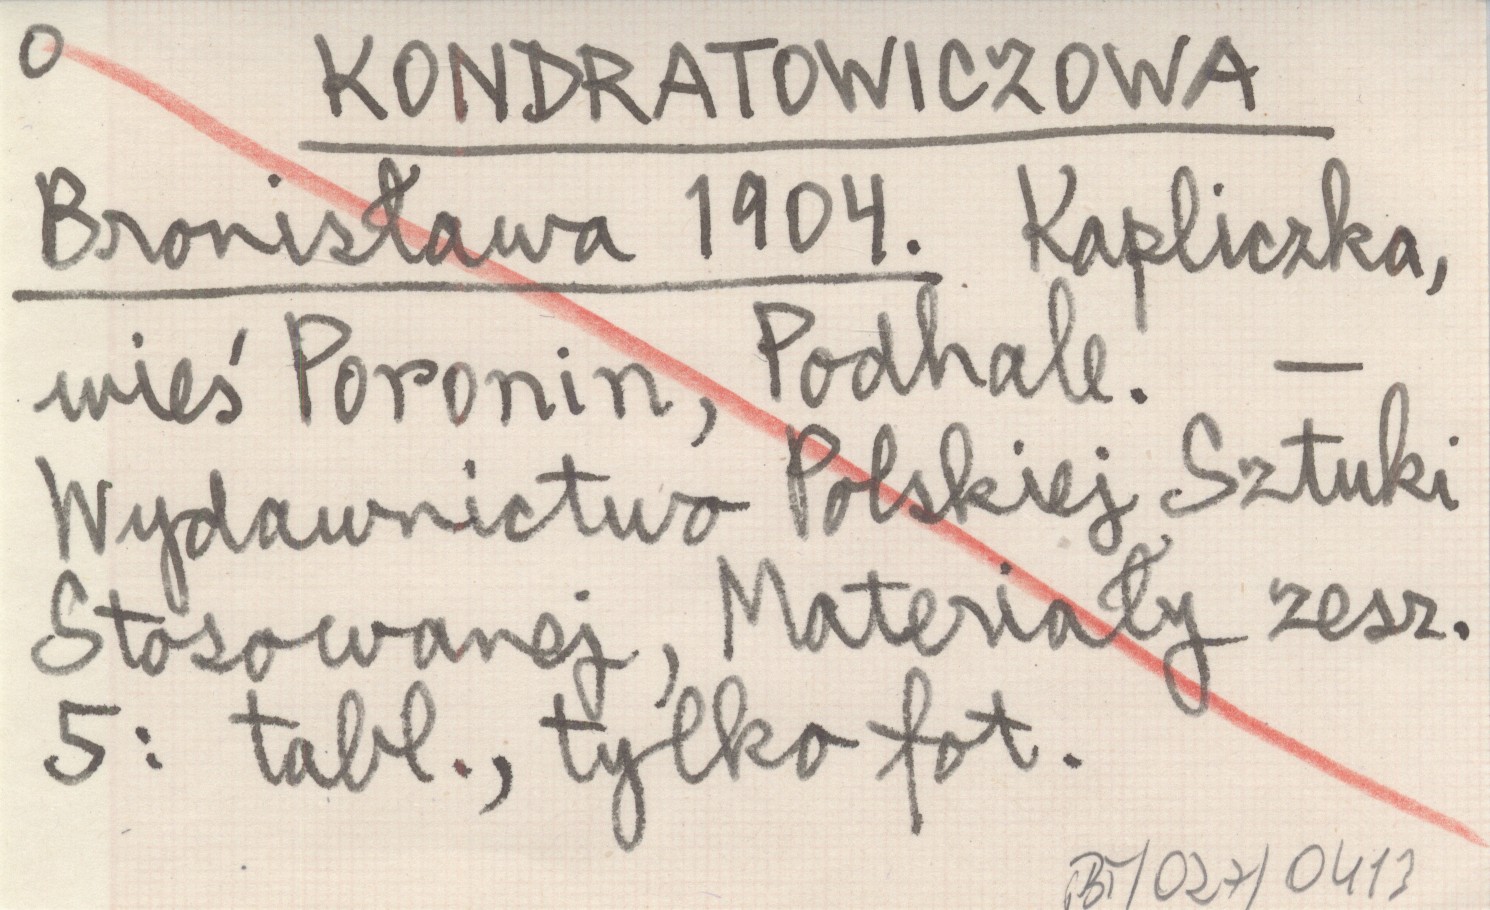 O KONDRATOWICZOWA
Bronisława 1904. Kapliczka,
wieś Poronin, Podhale. —
Wydawnictwo Polskiej Sztuki
Stosowanej, Materiały zesz.
5: tabl., tylko fot.
BT/027/0413